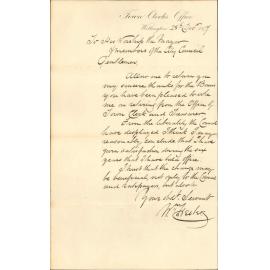 Town Clerk's Office
Wellington 28th Nov 1879
To His Worship the Mayor
& members of the City Council
Gentlemen
Allow me to return you
my sincere thanks for the Bonus
you have been pleased to vote
me on retiring from the Office of
Town Clerk and Treasurer
From the liberality the Council
have displayed I think I may
reasonably conclude that I have
given satisfaction during the
years that I have held office.
I trust that the change may
be beneficial not only to the Council
and Ratepayers, but also to
Your Obt. Servant
Wm Hester